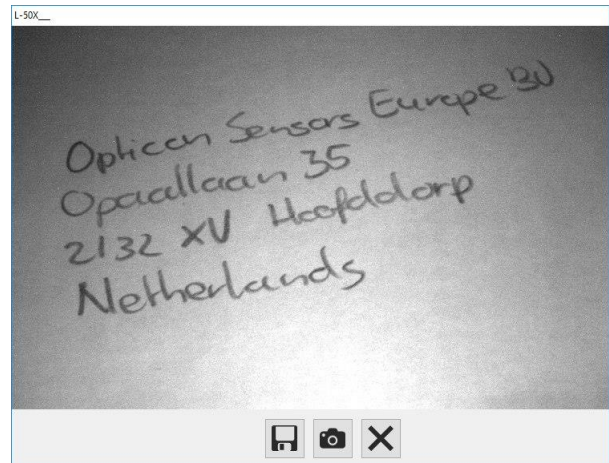 L-50X__
Opticon Sensors Europe BV
Opaallaan 35
2132 XV Hoofddorp
Netherlands